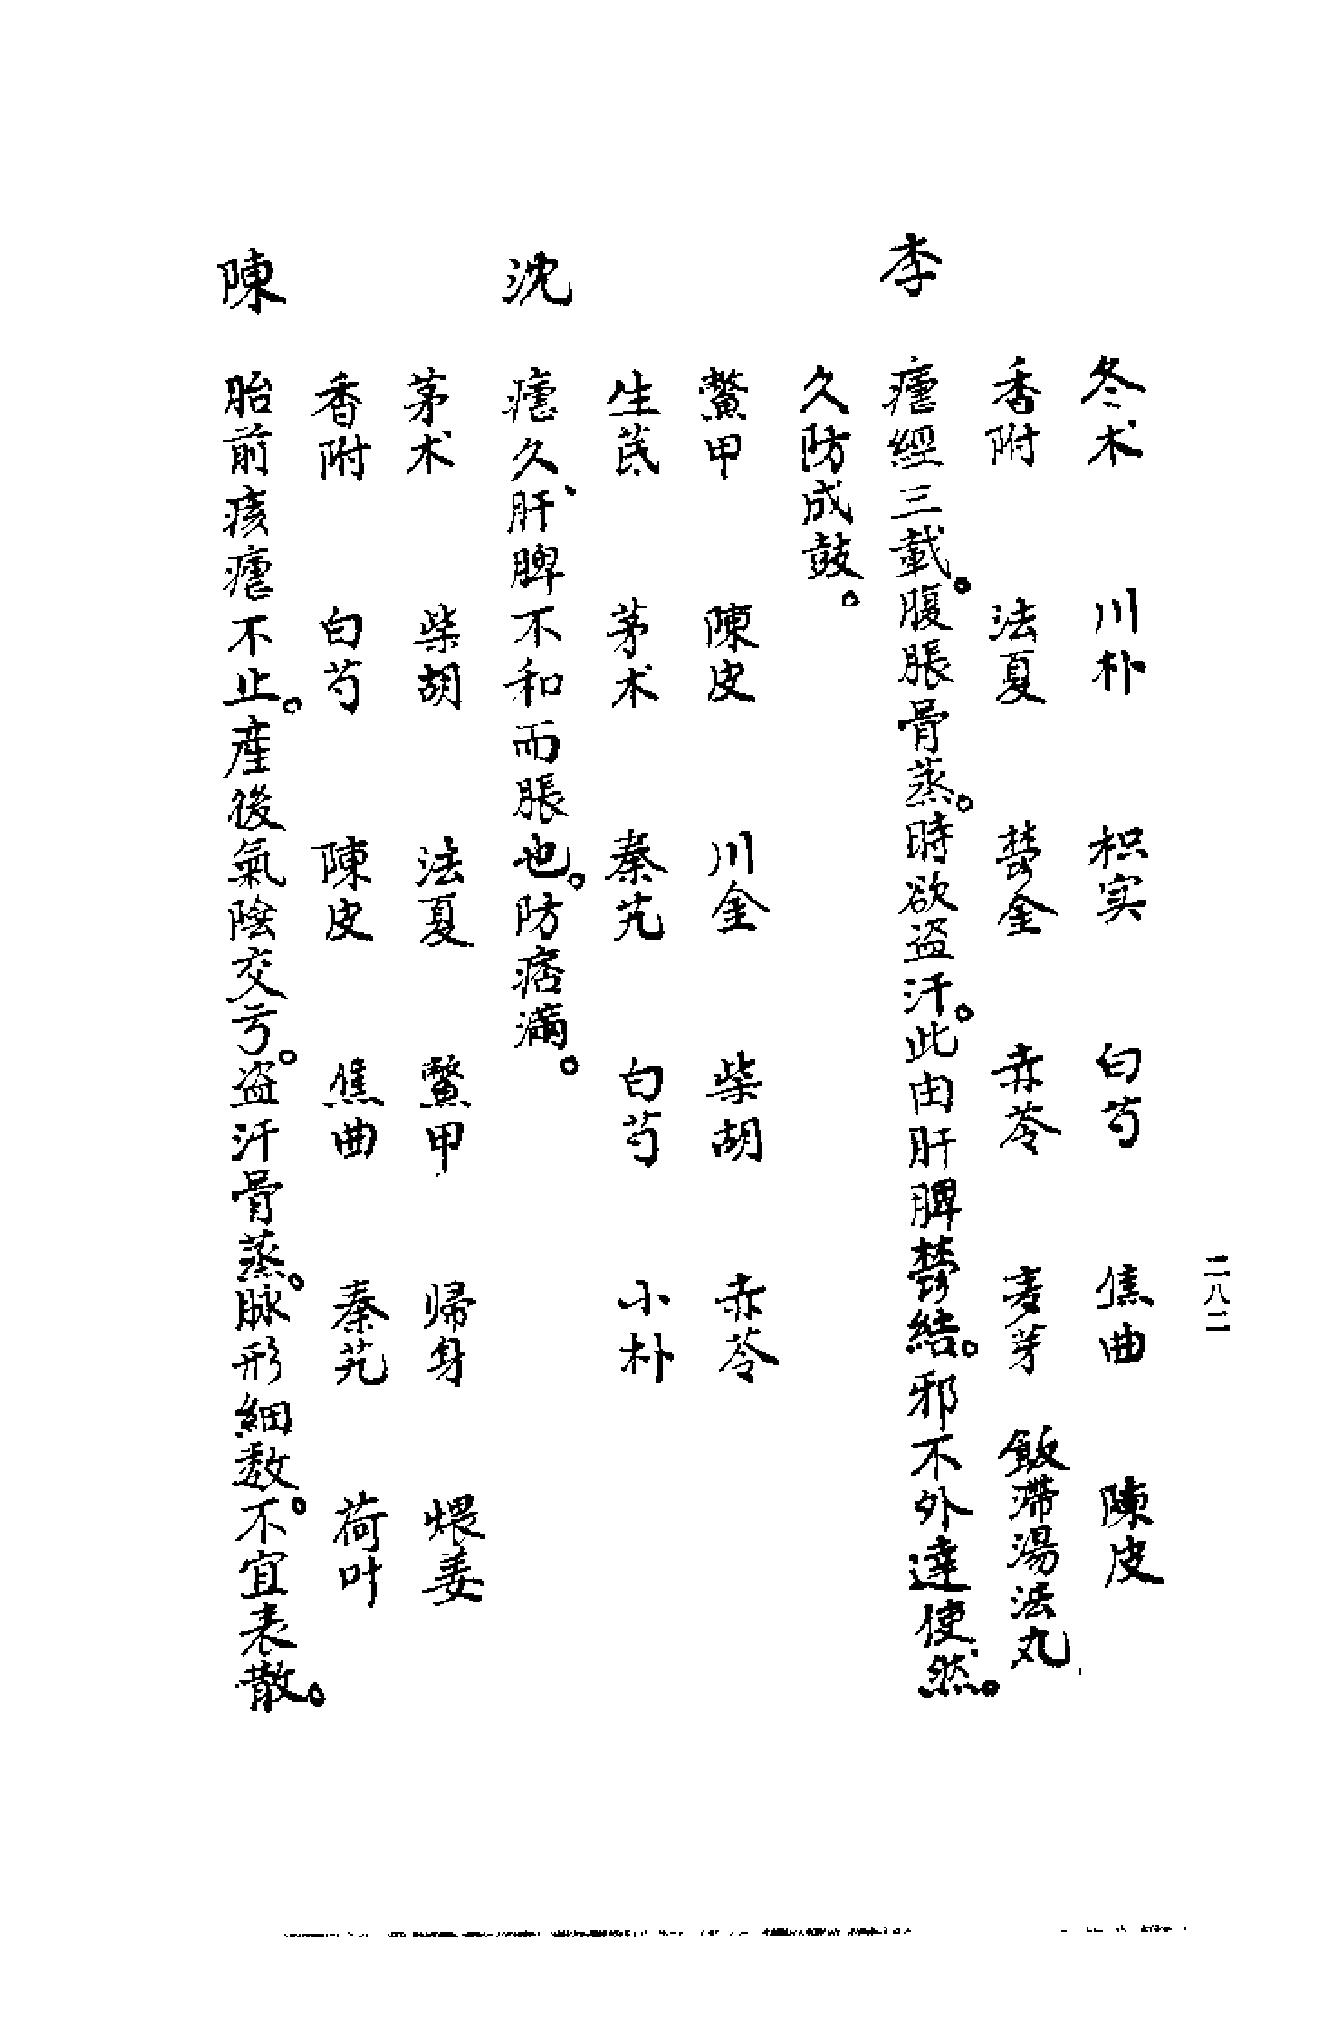 二八二
冬术 川朴 枳实 白芍 焦曲 陳皮
香附 法夏 鬱金 赤苓 麦芽 飯滞湯法丸
李 瘧經三載。腹脹骨蒸。時欲盗汗。此由肝脾鬱結。邪不外達使然。
久防成鼓。
鱉甲 陳皮 川金 柴胡 赤苓
生芪 茅术 秦艽 白芍 小朴
沈 瘧久、肝脾不和而脹也。防痞满。
茅术 柴胡 法夏 鱉甲 帰身 煨姜
香附 白芍 陳皮 焦曲 秦艽 荷叶
陳 胎前痎瘧不止。産後氣陰交亏。盗汗骨蒸。脉形細数。不宜表散。